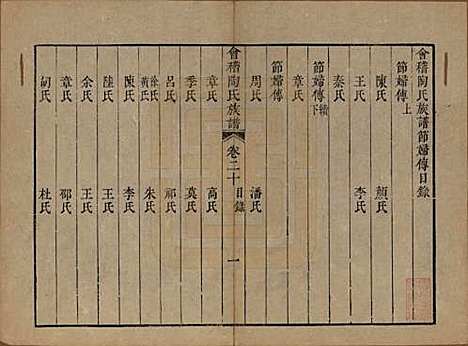 會稽陶氏族譜節婦傳目錄
節婦傳上
陳氏 顏氏
王氏 李氏
秦氏
節婦傳下 續
章氏
節婦傳
周氏 潘氏
會稽陶氏族譜 卷二十 目錄 一
章氏 高氏
季氏 莫氏
呂氏 祁氏
徐氏 黃氏 朱氏
陳氏 李氏
陸氏 王氏
余氏 王氏
章氏 鄒氏
胡氏 杜氏